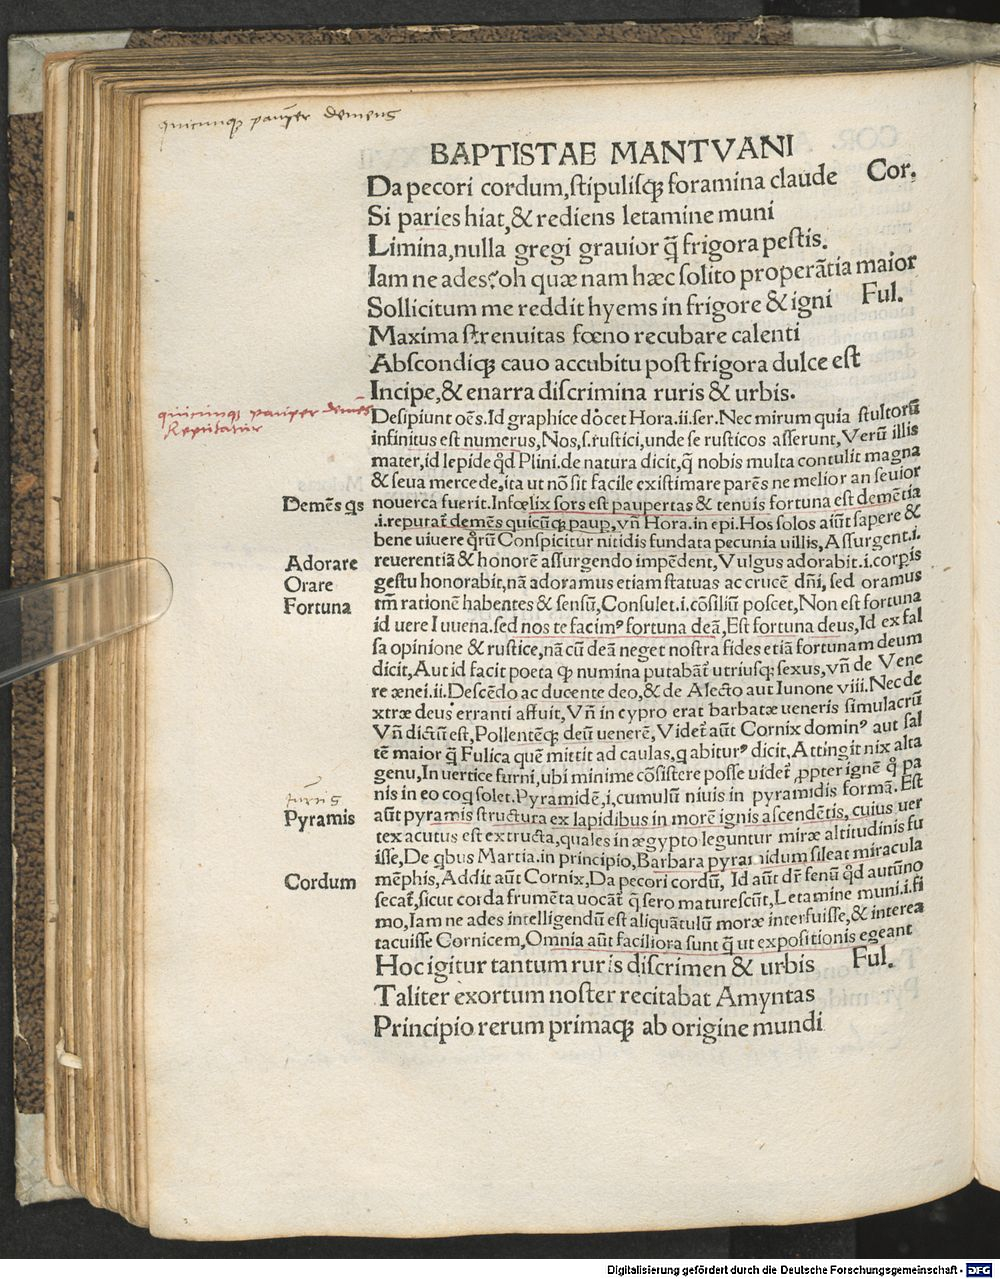 quicunqꝫ pauper demens
BAPTISTAE MANTVANI
Da pecori cordum,stipulisqꝫ foramina claude Cor.
Si paries hiat,& rediens letamine muni
Limina,nulla gregi grauior q̃ frigora pestis.
Iam ne ades?oh quæ nam hæc solito properãtia maior
Sollicitum me reddit hyems in frigore & igni Ful.
Maxima strenuitas fœno recubare calenti
Abscondiqꝫ cauo accubitu post frigora dulce est
Incipe,& enarra discrimina ruris & urbis.
quicunqꝫ pauper demēs
Reputatur
Desipiunt oẽs.Id graphice docet Hora.ii.ser.Nec mirum quia stultorũ
infinitus est numerus,Nos,s.rustici,unde se rusticos asserunt,Verũ illis
mater,id lepide qd̃ Plini.de natura dicit,q̃ nobis multa contulit magna
& seua mercede,ita ut nõ sit facile existimare parẽs ne melior an seuior
Demẽs qs
nouerca fuerit.Infœlix sors est paupertas & tenuis fortuna est demẽtia
.i.reputat̃ demẽs quicũqꝫ paup,vñ Hora.in epi.Hos solos aiũt sapere &
bene uiuere qrũ Conspicitur nitidis fundata pecunia uillis,Assurgent.i.
Adorare
reuerentiã & honorẽ assurgendo impẽdent,Vulgus adorabit.i.corpis
Orare
gestu honorabit,nã adoramus etiam statuas ac crucẽ dñi,sed oramus
Fortuna
tm̃ rationẽ habentes & sensũ,Consulet.i.cõsiliũ poscet,Non est fortuna
id uere Iuuena.sed nos te facimꝰ fortuna deã,Est fortuna deus,Id ex fal
sa opinione & rustice,nã cũ deã neget nostra fides etiã fortunam deum
dicit,Aut id facit poeta qꝫ numina putabãt̃ utriusqꝫ sexus,vñ de Vene
re ænei.ii.Descẽdo ac ducente deo,& de Alecto aut Iunone viii.Nec de
xtræ deus erranti affuit,Vñ in cypro erat barbatæ ueneris simulacrũ
Vñ dictũ est,Pollentẽqꝫ deũ uenerẽ,Videt̃ aũt Cornix dominꝰ aut sal
tẽ maior q̃ Fulica quẽ mittit ad caulas,q abiturꝰ dicit,Attingit nix alta
genu,In uertice furni,ubi minime cõsistere posse uidet̃ ꝓpter ignẽ q̃ pa
turris
nis in eo coq solet.Pyramidẽ,i,cumulũ niuis in pyramidis formã.Est
Pyramis
aũt pyramis structura ex lapidibus in morẽ ignis ascendẽtis,cuius uer
tex acutus est extructa,quales in ægypto leguntur miræ altitudinis fu
isse,De qbus Martia.in principio,Barbara pyramidum sileat miracula
Cordum
mẽphis,Addit aũt Cornix,Da pecori cordũ, Id aũt dr̃ fenũ qd̃ autũno
secat̃,sicut corda frumẽta uocãt̃ q̃ sero maturescũt,Letamine muni.i.fi
mo,Iam ne ades intelligendũ est aliquãtulũ moræ interfuisse,& interea
tacuisse Cornicem,Omnia aũt faciliora sunt q̃ ut expositionis egeant
Hoc igitur tantum ruris discrimen & urbis Ful.
Taliter exortum noster recitabat Amyntas
Principio rerum primaqꝫ ab origine mundi
Digitalisierung gefördert durch die Deutsche Forschungsgemeinschaft - DFG